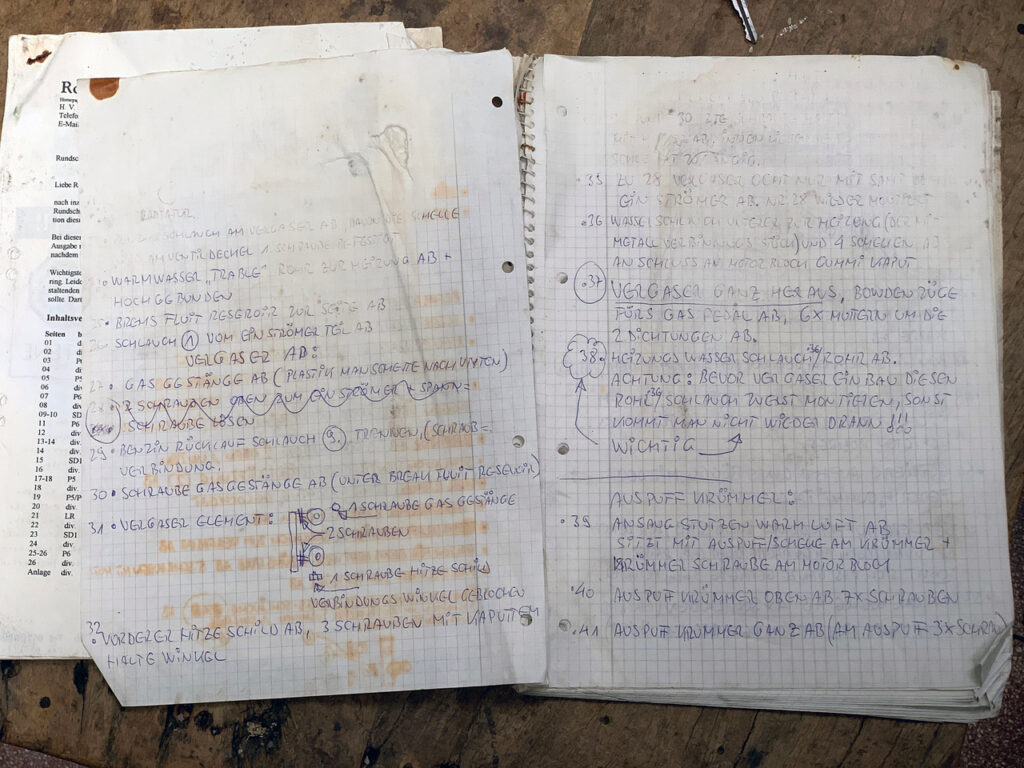 Homepag
H. V.
Telefo
E-Mai
Rundsch
Liebe R
nach in
Rundsch
tion dies
Bei diese
Ausgabe
nachdem
Wichtigst
ring. Leide
staltenden
sollte. Dar
Inhaltsve
Seiten
01 d
02 div
03 P
04 div
05 P5
06 div
07 P6
08 div.
09-10 SD1
11 P6
12 div.
13-14 div.
14 div.
15 SD1
16 div.
17-18 P5
18 div.
19 P5/P
20 div.
21 LR
22 div.
23 SD1
24 div.
25-26 P6
26 div.
Anlage div.
SCHLAUCH AM VERGASER AB, DANN SCHELLE
AM VENTILDECHEL 1 SCHRAUBE BEFESTIGT
• WARMWASSER "TRABLE" ROHR ZUR HEIZUNG AB +
HOCH GEBUNDEN
• BREMS FLUIT RESERVOIR ZUR SEITE AB
SCHLAUCH 1 VOM EINSTRÖMER TEIL AB
VERGASER AB:
27 • GAS GESTÄNGE AB (PLASTIK MANSCHETTE NACH UNTEN)
2 SCHRAUBEN OBEN ZUM EINSTRÖMER + SPANN=
SCHRAUBE LÖSEN
29 • BENZIN RÜCKLAUF SCHLAUCH 9. TRENNEN, (SCHRAUB=
VERBINDUNG.
30 • SCHRAUBE GASGESTÄNGE AB (UNTER BREAK FLUIT RESERVOIR)
31 • VERGASER ELEMENT:
1 SCHRAUBE GAS GESTÄNGE
2 SCHRAUBEN
1 SCHRAUBE HITZE SCHILD
VERBINDUNGS WINKEL GEBROCHEN
32 • VORDERER HITZE SCHILD AB, 3 SCHRAUBEN MIT KAPUTTEM
HALTE WINKEL
• 35 ZU 28 VERGASER GEHT NUR MIT SAMT
EINSTRÖMER AB. NR 28 WIEDER MONTIERT
• 36 WASSERSCHLAUCH ZUR HEIZUNG (DER MIT
METALL VERBINDUNGS STÜCK) UND 4 SCHELLEN AB
ANSCHLUSS AM MOTORBLOCK GUMMI KAPUT
• 37 VERGASER GANZ HERAUS, BOWDENZÜGE
FÜRS GAS PEDAL AB, 6X MUTTERN UM DIE
2 DICHTUNGEN AB.
38 • HEIZUNGS WASSER SCHLAUCH 36/ROHR AB.
ACHTUNG: BEVOR VERGASER EINBAU DIESEN
ROHR 36/SCHLAUCH ZUERST MONTIEREN, SONST
KOMMT MAN NICHT WIEDER DRANN!!!
WICHTIG
AUSPUFF KRÜMMER:
• 39 ANSAUG STUTZEN WARM LUFT AB
SITZT MIT AUSPUFF/SCHELLE AM KRÜMMER +
KRÜMMER SCHRAUBE AM MOTORBLOCK
• 40 AUSPUFF KRÜMMER OBEN AB 7X SCHRAUBEN
• 41 AUSPUFF KRÜMMER GANZ AB (AM AUSPUFF 3X SCHRAU)